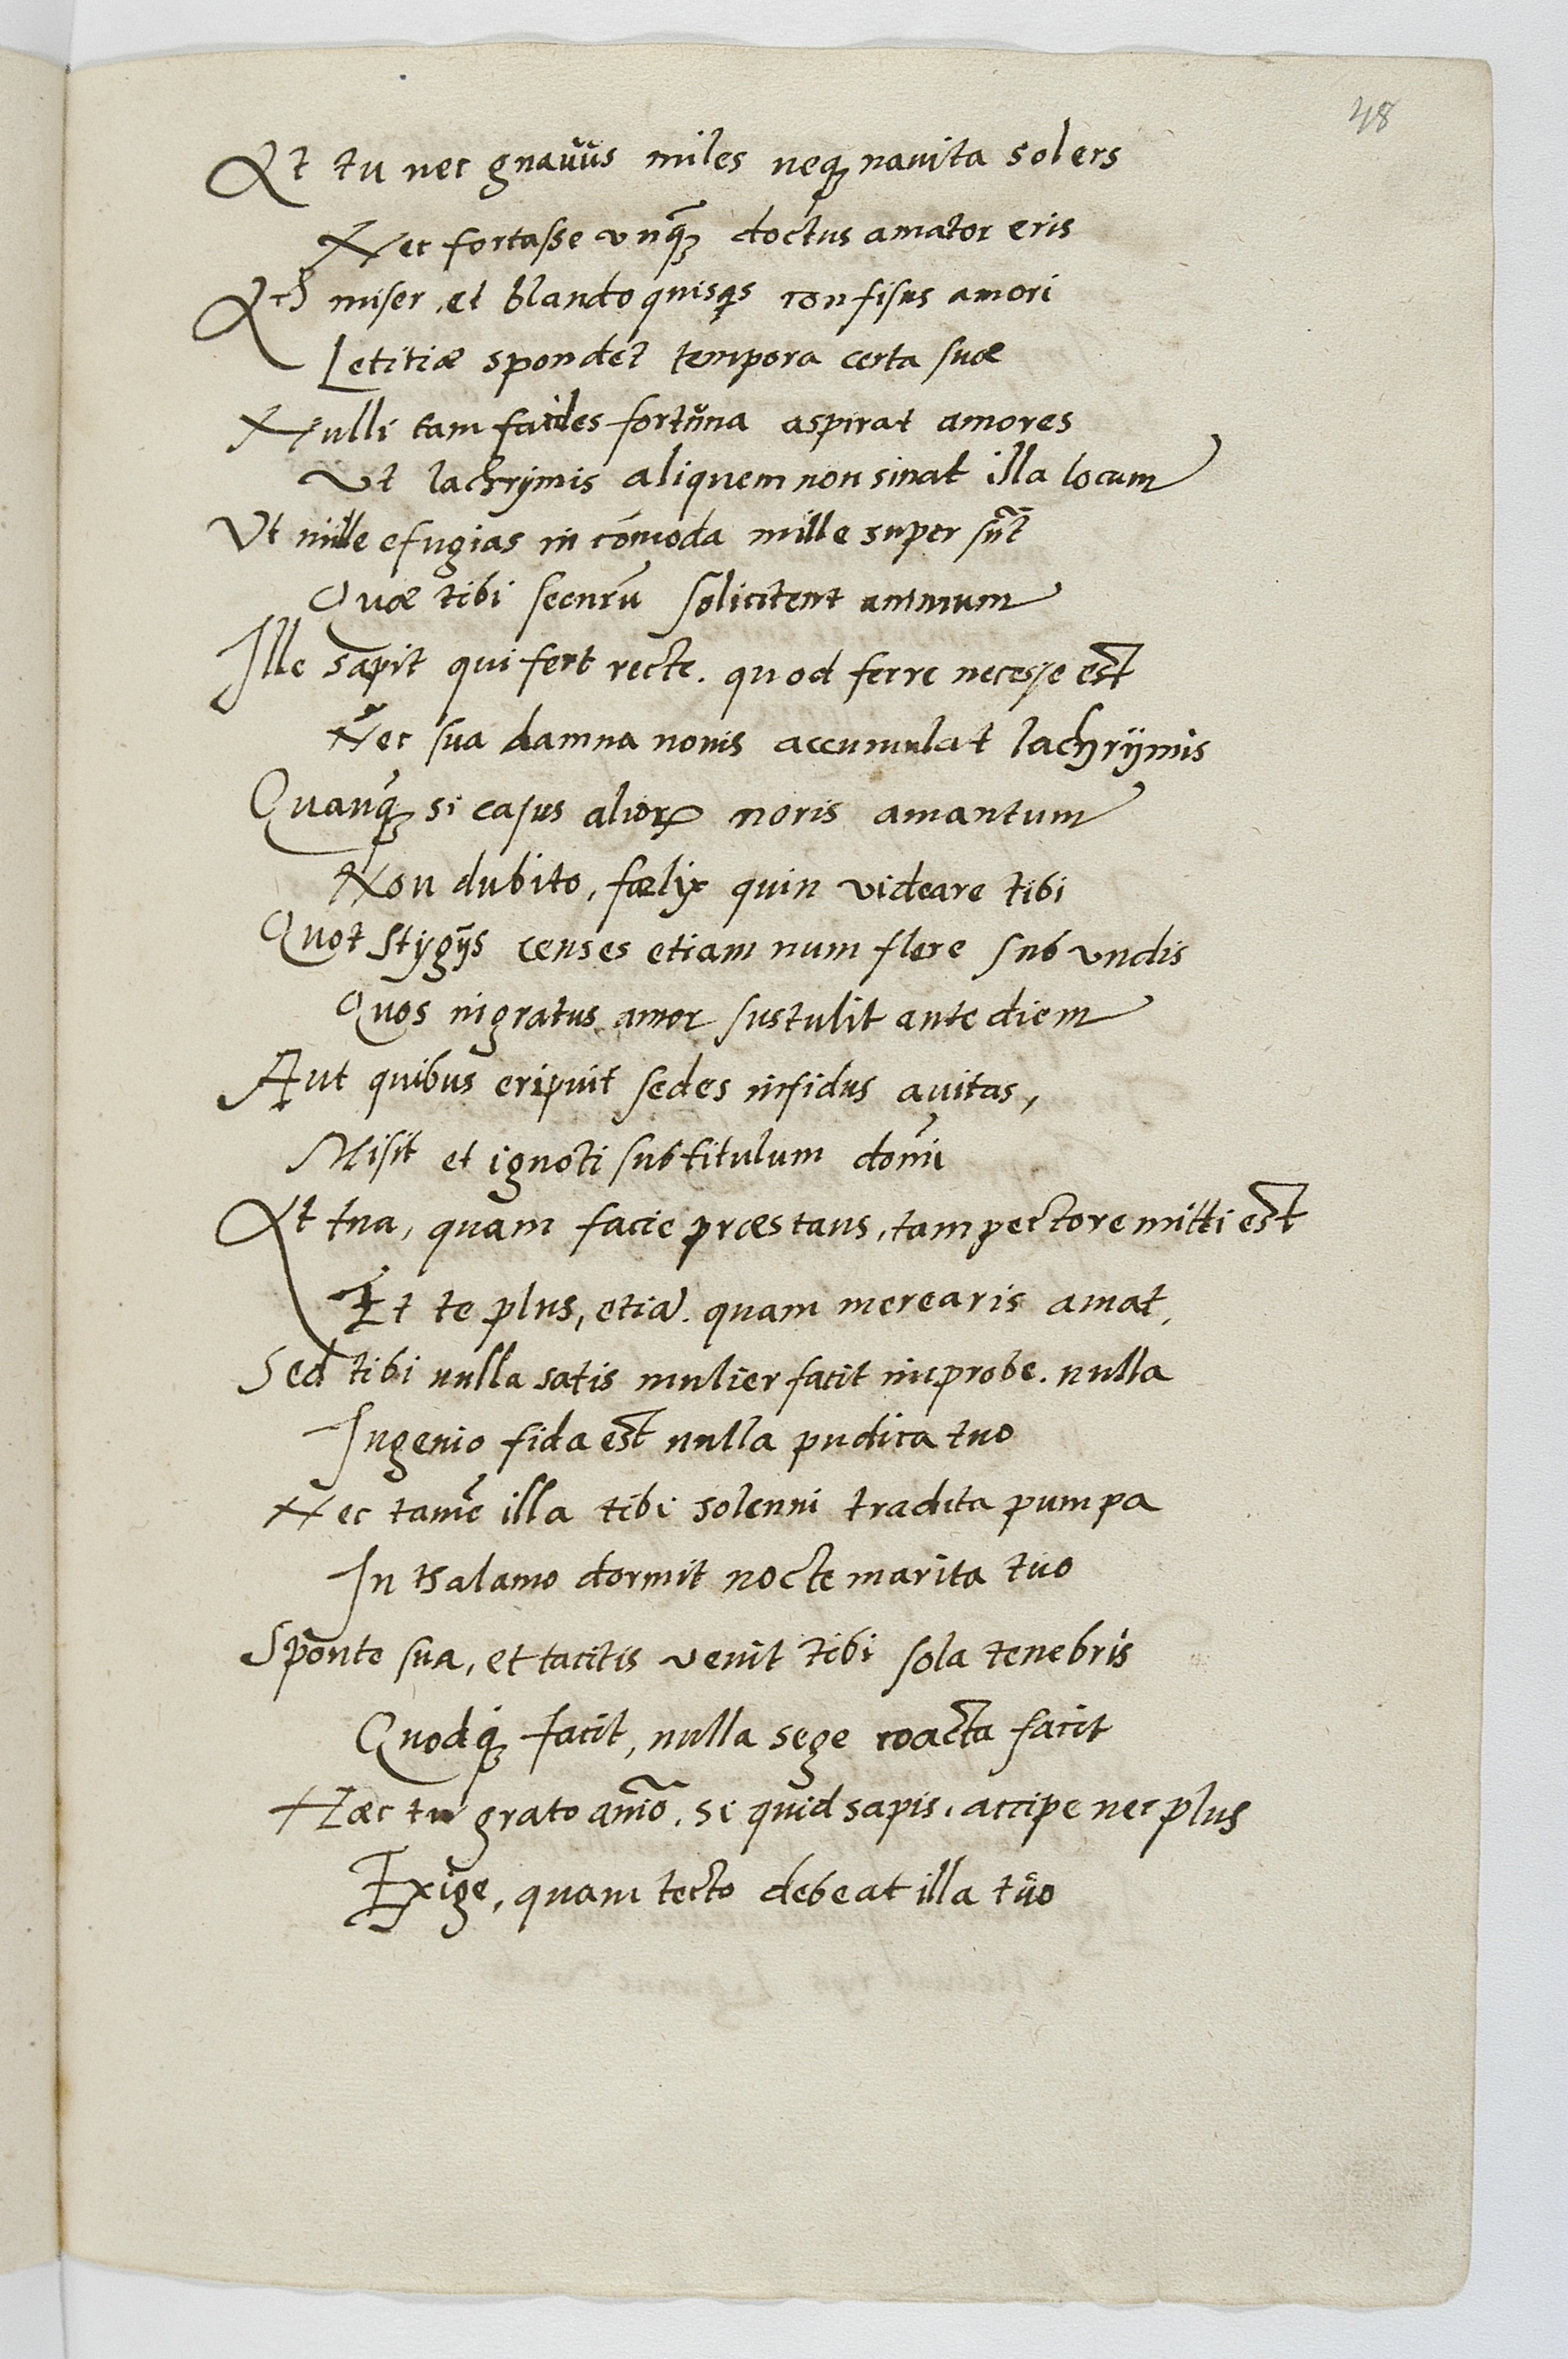 48
At tu nec gnavus miles neqꝫ navita solers
Nec fortasse vnq̃ꝫ doctus amator eris
Ah miser et blando quisqs confisus amori
Letitiæ spondet tempora certa suæ
Nulli tam faciles fortuna aspirat amores
Ut lachrymis aliquem non sinat illa locum
Vt mille efugias incómoda mille super sũt
Quæ tibi securũ solicitent animum
Ille sapit qui fert recte. quod ferre necesse est
Nec sua damna novis accumulat lachrÿmis
Quanq̃ꝫ si casus alioꝝ noris amantum
Non dubito, fælix quin videare tibi
Quot stygijs censes etiam num flere sub vndis
Quos ingratus amor sustulit ante diem
Aut quibus eripuit sedes infidus avitas,
Misit et ignoti sub titulum domĩ
At tua, quam facie præstans, tam pectore mitti est
Et te plus, etiã. quam merearis amat.
Sed tibi nulla satis mulier facit improbe. nulla
Ingenio fida est nulla pudica tuo
Nec tamẽ illa tibi solenni tradita pumpa
In thalamo dormit nocte marita tuo
Sponte sua, et tacitis venit tibi sola tenebris
Quodq́ꝫ facit, nulla sege coacta facit
Hæc tu grato anĩo. si quid sapis, accipe nec plus
Exige, quam tecto debeat illa tuo